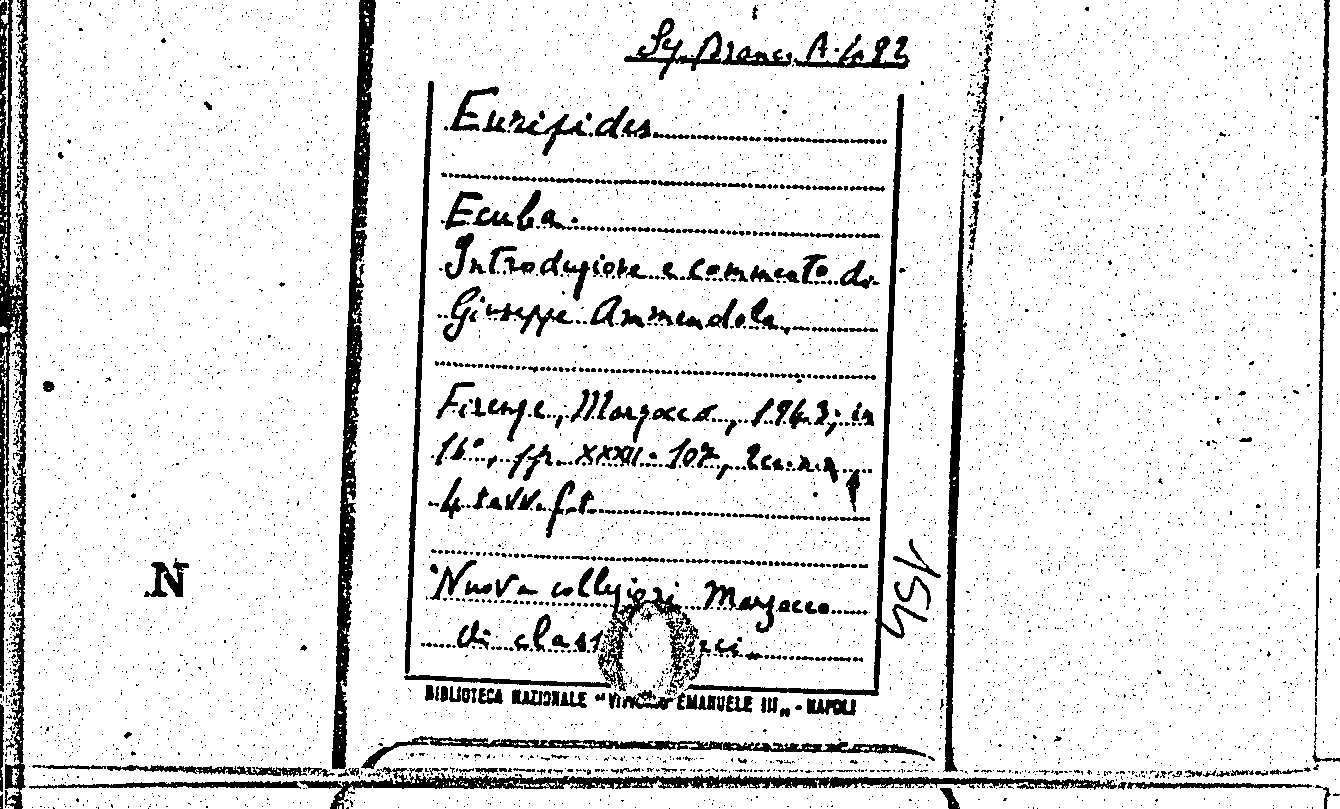 Sy. Branc. A. 492
Euripides
Ecuba.
Introduzione e commento di
Giuseppe Ammendola.
Firenze, Marzocco, 1963; in
16°, pp. XXXII-107,
4 tavv. f.t.
Nuova collezione Marzocco
di
N
154
BIBLIOTECA NAZIONALE "VITTORIO EMANUELE III" - NAPOLI